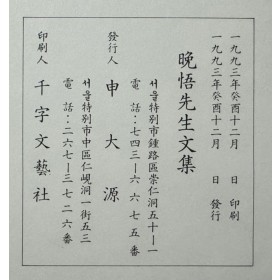 一九九三年癸酉十二月 日 印刷
一九九三年癸酉十二月 日 發行
晩悟先生文集
서울特別市鍾路區崇仁洞五十ー一
電話:七四三ー六六七五番
發行人 申大源
서울特別市中區仁峴洞一街五三
電話:二六七ー三七二六番
印刷人 千字文藝社